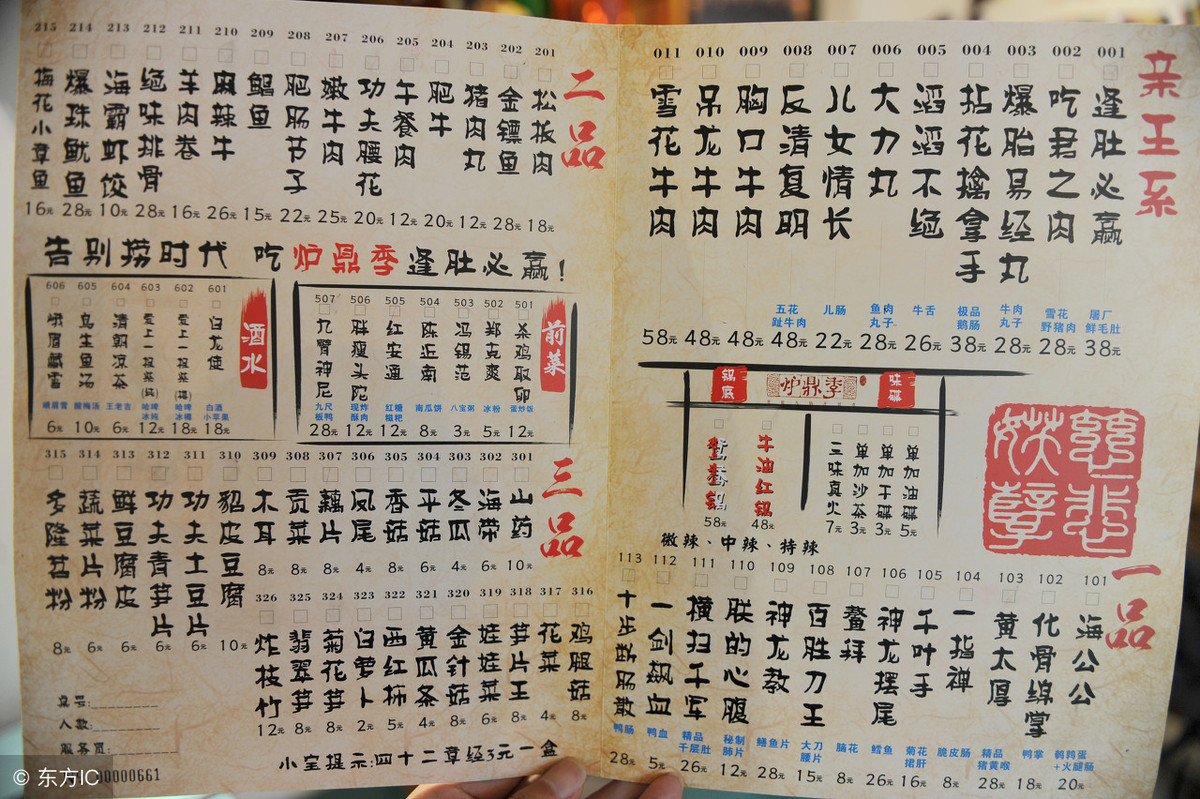 亲王系
001 逢肚必赢 屠厂鲜毛肚 38元
002 吃君之肉 雪花野猪肉 28元
003 爆胎易经丸 牛肉丸子 28元
004 拈花擒拿手 极品鹅肠 38元
005 滔滔不绝 牛舌 26元
006 大力丸 鱼肉丸子 28元
007 儿女情长 儿肠 22元
008 反清复明 五花趾牛肉 48元
009 胸口牛肉 48元
010 吊龙牛肉 48元
011 雪花牛肉 58元
锅底 炉鼎季 味碟
鸳鸯锅 58元
牛油红锅 48元
三味真火 7元
单加沙茶 3元
单加干碟 3元
单加油碟 5元
微辣、中辣、特辣
一品
101 海公公 鹌鹑蛋+火腿肠 20元
102 化骨绵掌 鸭掌 18元
103 黄太厚 精品猪黄喉 28元
104 一指禅 脆皮肠 8元
105 千叶手 菊花捃肝 16元
106 神龙摆尾 鳕鱼 26元
107 鳌拜 脑花 8元
108 百胜刀王 大刀腰片 15元
109 神龙教 鳝鱼片 28元
110 朕的心腹 秘制肺片 12元
111 横扫千军 精品千层肚 26元
112 一剑飙血 鸭血 5元
113 十步断肠散 鸭肠 28元
二品
201 松板肉 18元
202 金镖鱼 28元
203 猪肉丸 12元
204 肥牛 20元
205 午餐肉 12元
206 功夫腰花 20元
207 嫩牛肉 25元
208 肥肠节子 22元
209 鲳鱼 15元
210 麻辣牛 26元
211 羊肉卷 16元
212 绝味排骨 28元
213 海霸虾饺 10元
214 爆珠鱿鱼 28元
215 梅花小章鱼 16元
告别捞时代 吃炉鼎季逢肚必赢!
前菜
501 杀鸡取卵 蛋炒饭 12元
502 郑克爽 冰粉 5元
503 冯锡范 八宝粥 3元
504 陈近南 南瓜饼 8元
505 红安通 红糖糍粑 12元
506 胖瘦头陀 现炸酥肉 12元
507 九臂神尼 九尺板鸭 28元
酒水
601 白龙使 白酒小苹果 18元
602 爱上一枝菜(樽) 哈啤冰樽 18元
603 爱上一枝菜(纯) 哈啤冰纯 12元
604 清朝凉茶 王老吉 6元
605 乌生鱼汤 酸梅汤 10元
606 峨眉藏雪 峨眉雪 6元
三品
301 山药 10元
302 海带 6元
303 冬瓜 4元
304 平菇 6元
305 香菇 8元
306 凤尾 4元
307 藕片 8元
308 贡菜 8元
309 木耳 8元
310 貂皮豆腐 10元
311 功夫土豆片 6元
312 功夫青笋片 6元
313 鲜豆腐皮 6元
314 蔬菜片粉 6元
315 多隆苕粉 8元
316 鸡腿菇 8元
317 花菜 4元
318 笋片王 8元
319 娃娃菜 6元
320 金针菇 8元
321 黄瓜条 4元
322 西红柿 5元
323 白萝卜 2元
324 菊花笋 8元
325 翡翠笋 8元
326 炸枝竹 12元
桌号:
人数:
服务员:
小宝提示:四十二章经3元一盒
0000661
© 东方IC